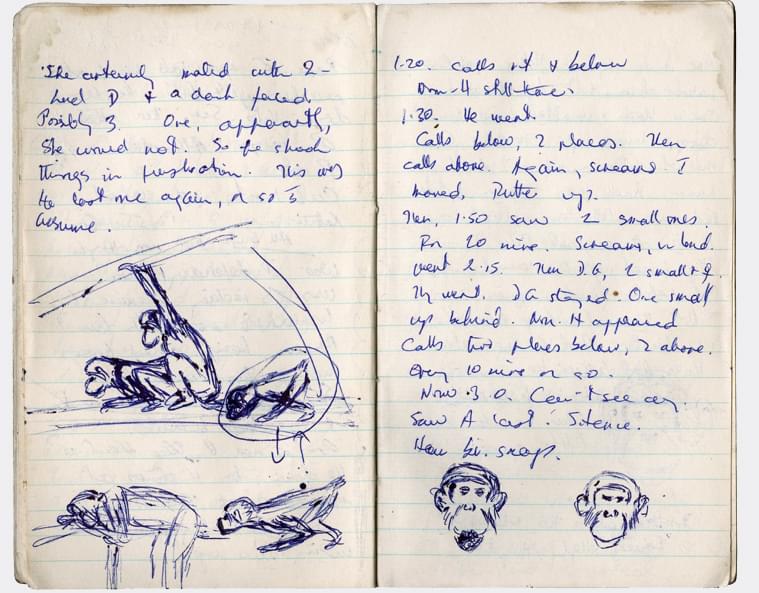 She certainly mated with 2 –
and D + a dark faced
Possibly 3. One, apparently,
she would not. So he shook
things in frustration. This was
he lost me again, or so I
assume.
1.20. Calls & below
still there.
1.30. He went.
Calls below, 2 places. Then
calls above. Again, screams. I
moved, up.
Then, 1.50 saw 2 small ones.
For 20 mins. Screams, v. loud.
went 2.15. Then D.G, 2 small + ♀.
They went. DG stayed. One small
up behind. appeared
Calls two places below, 2 above.
Every 10 mins or so.
Now 3.0. Can't see any.
Saw A last! Silence.